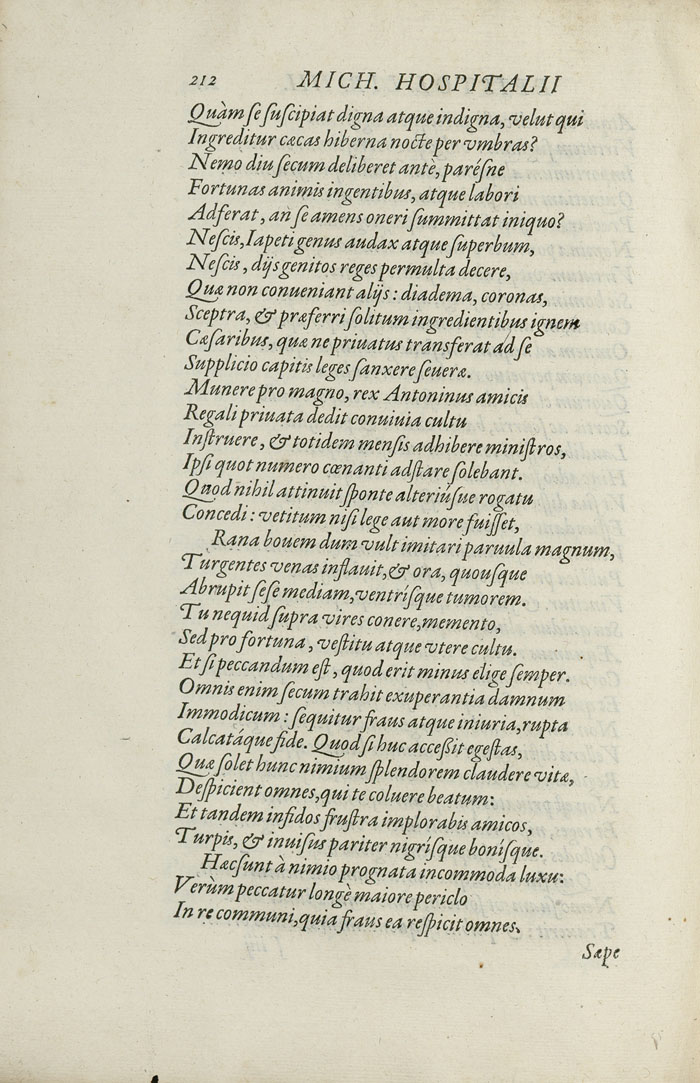 212 MICH. HOSPITALII
Quàm se suscipiat digna atque indigna, velut qui
Ingreditur cæcas hiberna nocte per vmbras?
Nemo diu secum deliberet antè, parésne
Fortunas animis ingentibus, atque labori
Adferat, an se amens oneri summittat iniquo?
Nescis, Iapeti genus audax atque superbum,
Nescis, dijs genitos reges permulta decere,
Quæ non conueniant alijs: diadema, coronas,
Sceptra, & præferri solitum ingredientibus ignem
Cæsaribus, quæ ne priuatus transferat ad se
Supplicio capitis leges sanxere seueræ.
Munere pro magno, rex Antoninus amicis
Regali priuata dedit conuiuia cultu
Instruere, & totidem mensis adhibere ministros,
Ipsi quot numero cœnanti adstare solebant.
Quod nihil attinuit sponte alteriúsue rogatu
Concedi: vetitum nisi lege aut more fuisset,
Rana bouem dum vult imitari paruula magnum,
Turgentes venas inflauit, & ora, quousque
Abrupit sese mediam, ventrísque tumorem.
Tu nequid supra vires conere, memento,
Sed pro fortuna, vestitu atque vtere cultu.
Et si peccandum est, quod erit minus elige semper.
Omnis enim secum trahit exuperantia damnum
Immodicum: sequitur fraus atque iniuria, rupta
Calcatáque fide. Quod si huc accessit egestas,
Quæ solet hunc nimium splendorem claudere vitæ,
Despicient omnes, qui te coluere beatum:
Et tandem infidos frustra implorabis amicos,
Turpis, & inuisus pariter nigrísque bonisque.
Hæc sunt à nimio prognata incommoda luxu:
Verùm peccatur longè maiore periclo
In re communi, quia fraus ea respicit omnes.
Sæpe